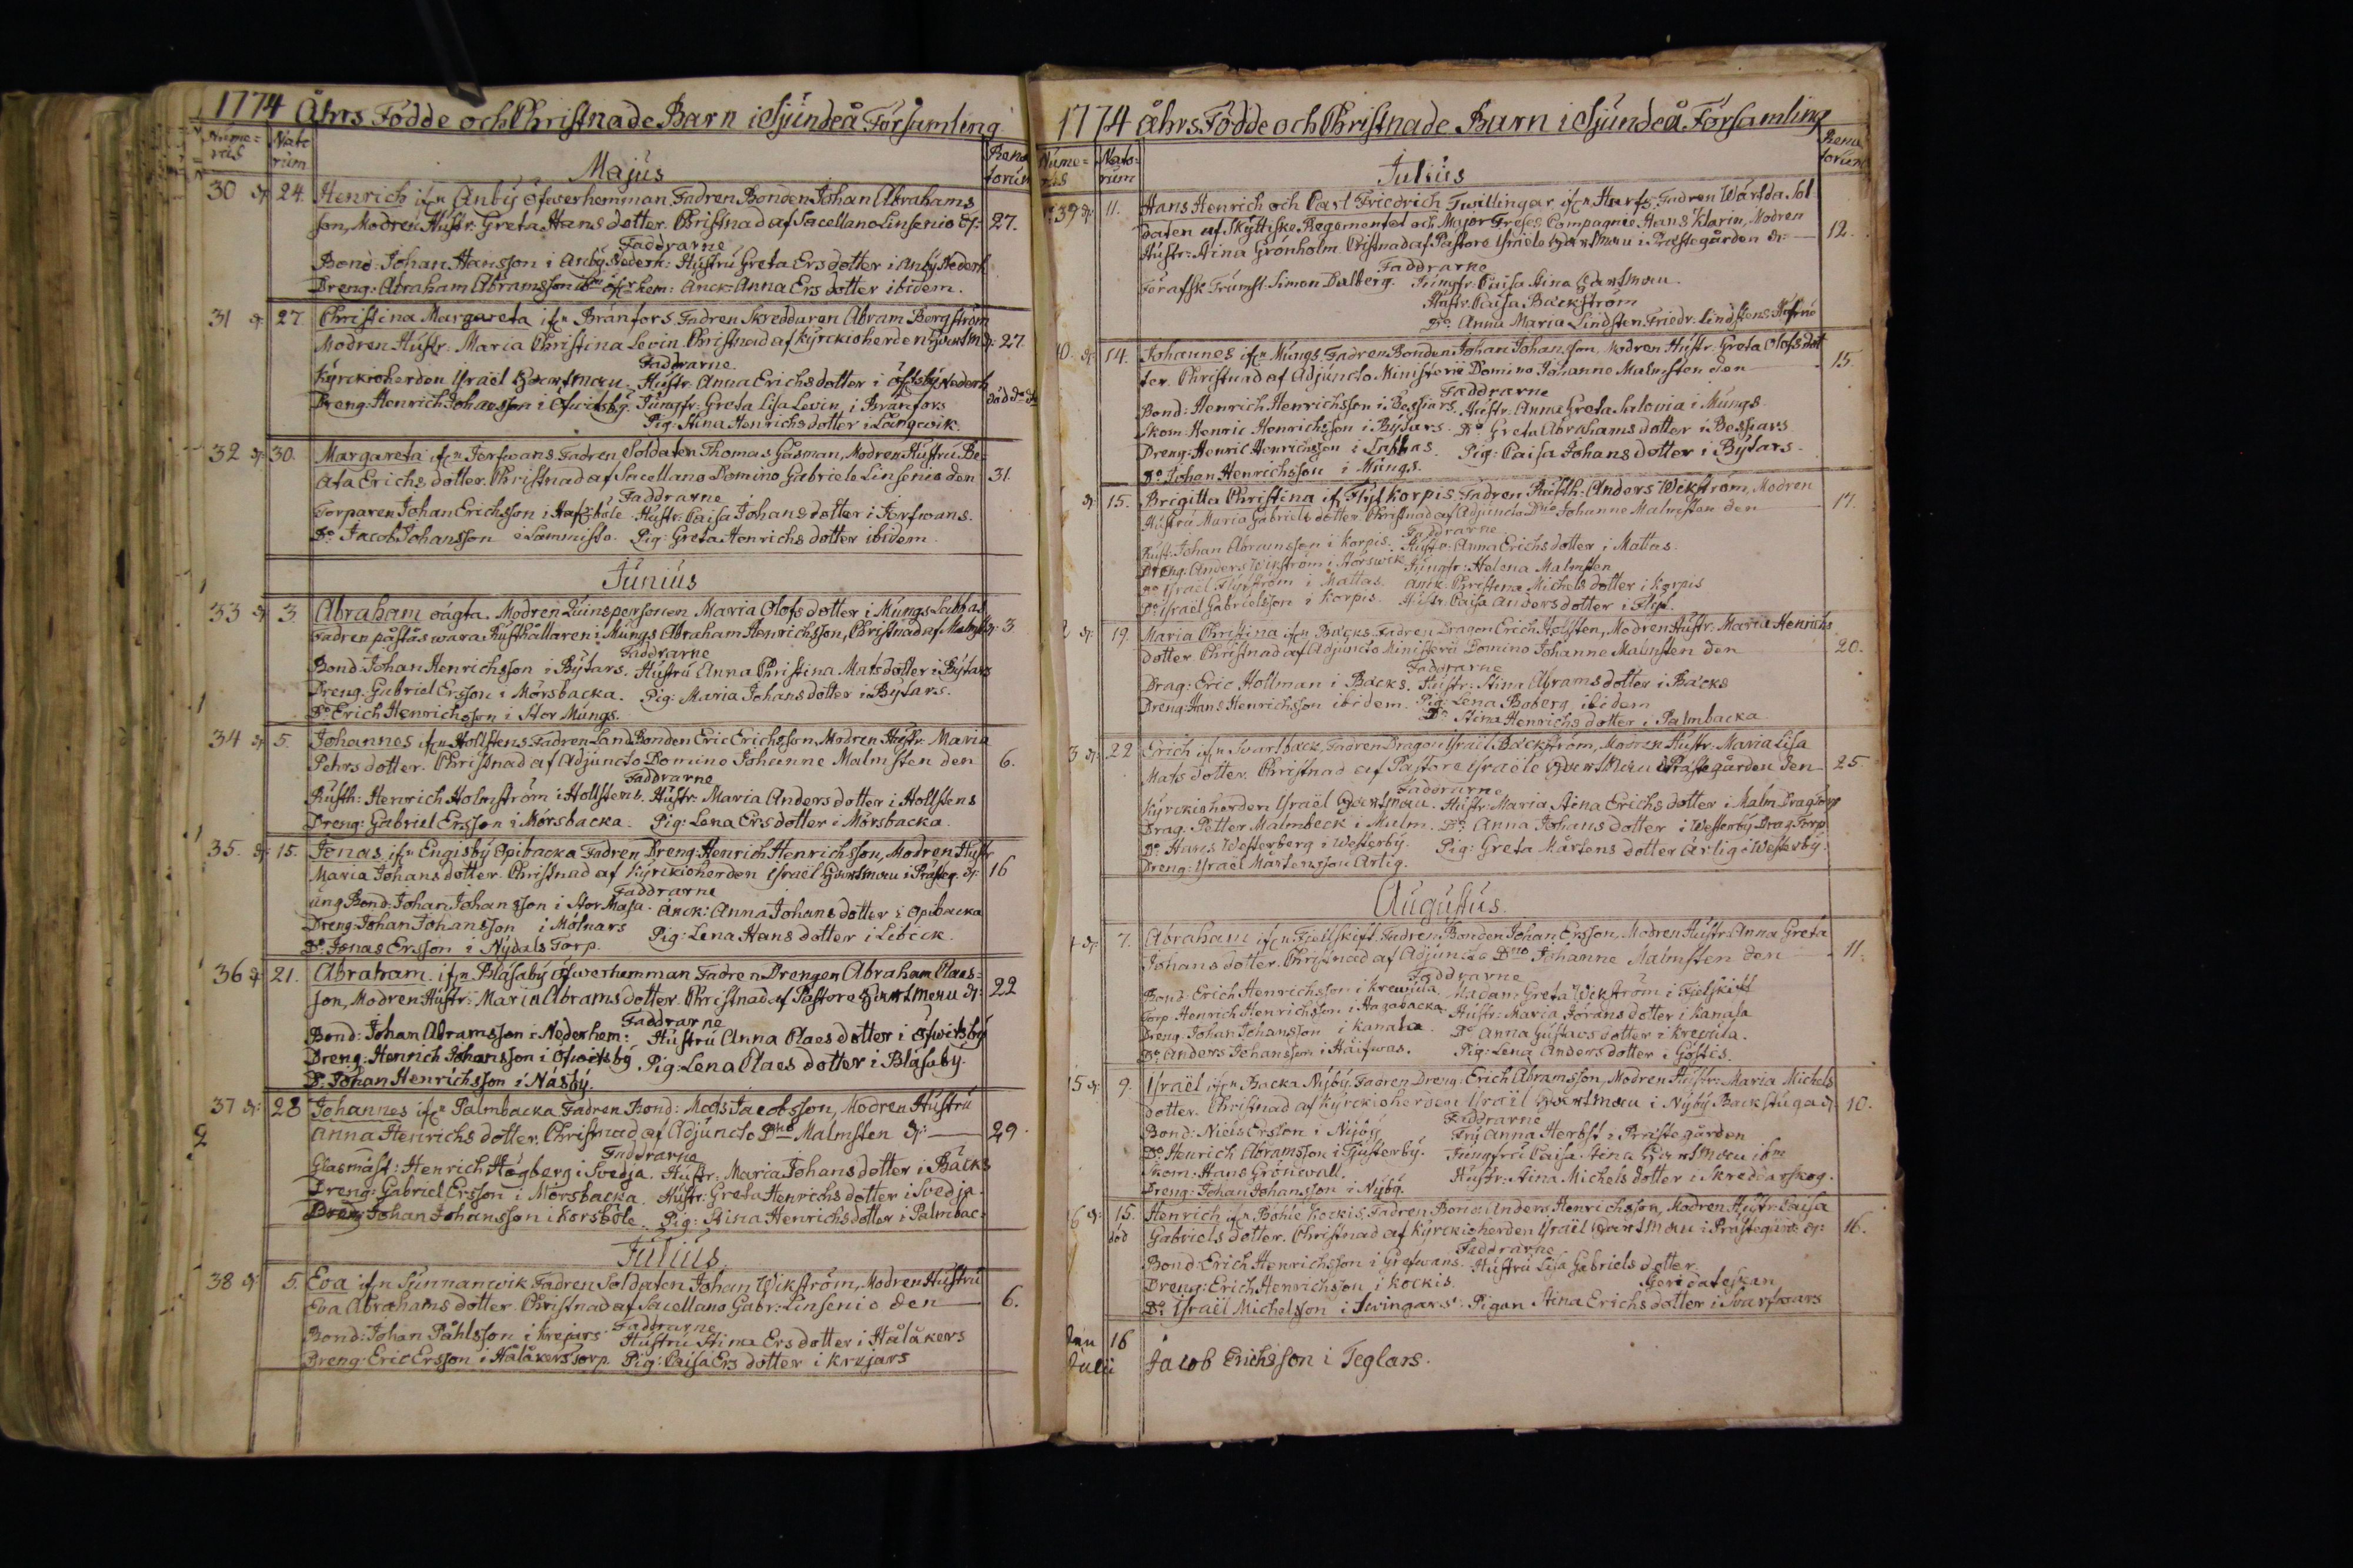 1774 Åhrs Födde och Christnade Barn i Sjundeå Församling
Nume= rus Nato rum Rena torum
Majus
30 d: 24. Henrich ifrn Anby Öfwerhemman. Fadren Bonden Johan Abrahams
son, Modren Hustr: Greta Hansdotter. Christnad af Sacellano Linsenio d: 27.
Faddrarne
Bond: Johan Hansson i Anby Nederh: Hustru Greta Ersdotter i Anby Nederh
Dreng: Abraham Abramsson ibm öfr hem: Anck: Anna Ers dotter ibidem.
31 d: 27. Christina Margareta ifrn Brånfors. Fadren Skreddaren Abram Bergström
Modren Hustr: Maria Christina Levin. Christnad af Kyrckioherden d: 27.
Faddrarne
Kyrckioherden Israël Hustr: Anna Erichsdotter i Nederh
Dreng: Henrich Johansson i Öfwitsby. Jungfr: Greta Lisa Levin i Brånfors död
Pig: Stina Henrichsdotter i Långwik.
32 d: 30. Margareta ifrn Jorfwans Fadren Soldaten Thomas Gåsman, Modren Hustru Be=
ata Erichsdotter. Christnad af Sacellano Domino Gabriele Linsenio den 31.
Faddrarne
Torparen Johan Erichsson i Hustr: Caisa Johansdotter i Jorfwans.
Do Jacob Johansson i Sammisto. Pig: Greta Henrichsdotter ibidem.
Junius
33 d: 3. Abraham oägta. Modren Quinspersonen Maria Olofsdotter i Mungs Labbas
Fadren påstås wara Rusthållaren i Mungs Abraham Henrichsson, Christnad af Malmst: d: 3.
Faddrarne
Bond: Johan Henrichsson i Bytars. Hustru Anna Christina Matsdotter i Bytars
Dreng: Gabriel Ersson i Mörsbacka. Pig: Maria Johansdotter i Bytars.
Do Erich Henrichsson i Stor Mungs.
34 d: 5. Johannes ifrn Hollstens. Fadren Land Bonden Eric Erichsson, Modren Hustr: Maria
Pehrsdotter. Christnad af Adjuncto Domino Johanne Malmsten den 6.
Faddrarne
Rusth: Henrich Holmström i Hollstens. Hustr: Maria Andersdotter i Hollstens
Dreng: Gabriel Ersson i Mörsbacka. Pig: Lena Ersdotter i Mörsbacka.
35. d: 15. Jonas ifrn Engisby Opibacka Fadren Dreng: Henrich Henrichsson, Modren Hustr
Maria Johansdotter. Christnad af Kyrckioherden Israël i Präster. d: 16
Faddrarne
ung Bond: Johan Johansson i Stor Masa. Anck: Anna Johansdotter i Opibacka
Dreng: Johan Johansson i Mölnars Pig: Lena Hansdotter i Lebeck.
Do Jonas Ersson i Nydals Torp.
36 d: 21. Abraham ifrn Blåsaby Öfwerhemman Fadren Drengen Abraham Claes=
son, Modren Hustr: Maria Abramsdotter. Christnad af Pastore d: 22
Faddrarne
Bond: Johan Abramsson i Nederhem: Hustru Anna Claesdotter i Öfwitsby
Dreng: Henrich Johansson i Öfwitsby Pig: Lena Claesdotter i Blåsaby.
D: Johan Henrichsson i Näsby.
37 d: 28 Johannes ifrn Palmbacka Fadren Bond: Mats Jacobsson, Modren Hustru
Anna Henrichsdotter. Christnad af Adjuncto Dno Malmsten d: 29.
Faddrarne
Glasmäst: Henrich Högberg i Svedja. Hustr: Maria Johansdotter i Bäcks
Dreng: Gabriel Ersson i Mörsbacka. Hustr: Greta Henrichsdotter i Svedja.
Dreng Johan Johansson i Korsböle. Pig: Stina Henrichsdotter i Palmbac:
Julius
38 d: 5. Eva ifrn Sunnanwik Fadren Soldaten Johan Wikström, Modren Hustru
Eva Abrahamsdotter. Christnad af Sacellano Gabr: Linsenio den 6.
Faddrarne
Bond: Johan Påhlsson i Krejars Hustru Stina Ersdotter i Hålåkers
Dreng: Eric Ersson i Hålåkers torp. Pig: Caisa Ersdotter i Krejars
1774 åhrs Födde och Christnade Barn i Sjundeå Församling
Nume= rus Nato= rum Rena torum
Julius
39 d: 11. Hans Henrich och Carl Friedrich Twillingar ifrn Harfs. Fadren Wärfda Sol
daten af Skyttiske Regementet och Major Compagnie Hans Klarin, Modren
Hustr: Stina Grönholm. Christnad af Pastore Israële i Prästegården d: 12.
Faddrarne
Trumsl: Simon Dalberg. Jungfr: Caisa Stina
Hustr: Caisa Backström
Do: Anna Maria Lindsten Friedr. Lindstens Hustru
40. d: 14. Johannes ifrn Mungs. Fadren Bonden Johan Johansson, Modren Hustr: Greta Olofsdot
ter. Christnad af Adjuncto Ministerii Domino Johanne Malmsten den 15.
Faddrarne
Bond: Henrich Henrichsson i Bessiars. Hustr: Anna Greta Salonia i Mungs.
Skom: Henric Henrichsson i Bytars. Do Greta Abrahamsdotter i Bessiars
Dreng: Henric Henrichsson i Labbas. Pig: Caisa Johansdotter i Bytars.
Do Johan Henrichsson i Mungs.
d: 15. Brigitta Christina if Flyt Korpis Fadren Rusth: Anders Wikström, Modren
Hustru Maria Gabrielsdotter. Christnad af Adjuncto Dno Johanne Malmsten den 17.
Faddrarne
Rust: Johan Abramsson i Korpis. Hustr: Anna Erichsdotter i Mattas.
Dreng: Anders Wikström i Störswik Jungfr: Helena Malmsten
Do Israël Flyström i Mattas. Anck: Christina Michelsdotter i Korpis
Do Israël Gabrielsson i Korpis. Hustr: Caisa Andersdotter i Flyt.
2 d: 19. Maria Christina ifrn Bäcks. Fadren Dragon Erich Holsten, Modren Hustr: Maria Henrichs
dotter. Christnad af Adjuncto Ministerii Domino Johanne Malmsten den 20.
Faddrarne
Drag: Eric Hollman i Bäcks. Hustr: Stina Abramsdotter i Bäcks
Dreng: Hans Henrichsson ibidem. Pig: Lena Boberg ibidem
Do Stina Henrichsdotter i Palmbacka
3 d: 22 Erich ifrn Svartback, Fadren Dragon Israël Backström, Modren Hustr: Maria Lisa
Matsdotter. Christnad af Pastore Israële i Prästegården den 25.
Faddrarne
Kyrckioherden Israël Hustr: Maria Stina Erichsdotter i Malm Drag Torp
Drag: Petter Malmbeck i Malm. Do: Anna Johansdotter i Westerby Drag. Torp
Do Hans Westerberg i Westerby. Pig: Greta Mårtensdotter Artig i Westerby.
Dreng: Israël Mårtensson Artig.
Augustus.
4 d: 7. Abraham ifrn Fjellskift. Fadren Bonden Johan Ersson, Modren Hustr: Anna Greta
Johansdotter. Christnad af Adjuncto Dno Johanne Malmsten den 11.
Faddrarne
Bond: Erich Henrichsson i Krewula. Madam Greta Wikström i Fjelskift
Torp: Henrich Henrichsson i Hagabacka. Hustr: Maria Jöransdotter i Kanala
Dreng: Johan Johansson i Kanala. Do Anna Gustavsdotter i Krewula.
Do: Anders Johansson i Häifwas. Pig: Lena Andersdotter i Göstis.
5 d: 9. Israël ifrn Backa Nyby. Fadren Dreng: Erich Abramsson, Modren Hustr: Maria Michels
dotter. Christnad af Kyrckioherden Israël i Nyby Backstuga d: 10.
Faddrarne
Bond: Niels Ersson i Nyby Fru Anna Herbst i Prästegården
Do: Henrich Abramsson i Tjusterby. Jungfru Caisa Stina ibm
Skom: Hans Grönwall. Hustr: Stina Michelsdotter i Skreddarskog.
Dreng: Johan Johansson i Nyby.
6 d: 15. Henrich ifrn Böhle Kockis, Fadren Bond: Anders Henrichsson, Modren Hustr: Caisa
död Gabrielsdotter. Christnad af Kyrckioherden Israël i Prästegård: d: 16.
Faddrarne
Bond: Erich Henrichsson i Grefwans. Hustru Lisa Gabrielsdotter.
Dreng: Erich Henrichsson i Kockis.
Do Israël Michelsson i Swingars. Pigan Stina Erichsdotter i Svarfwars
den 16
Julii Jacob Erichsson i Teglars.